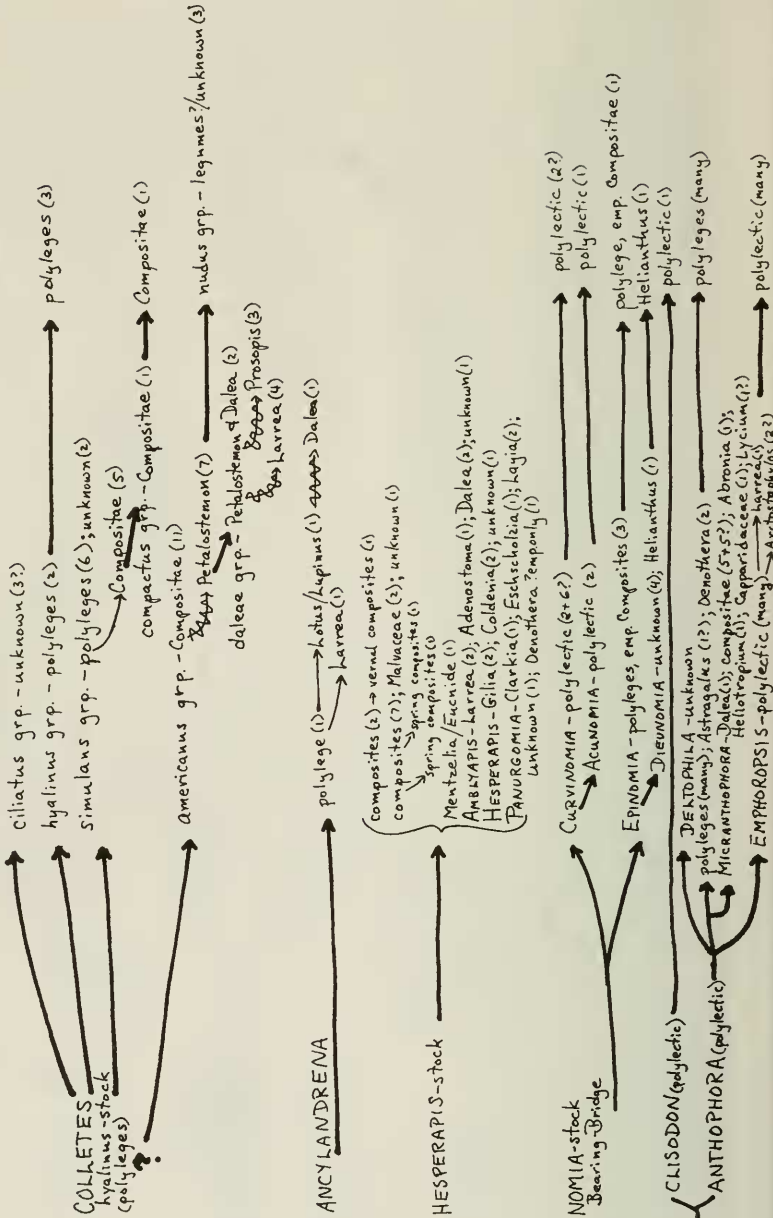 COLLETES
hyalinus-stock
(polyleges)
?
ciliatus grp.-unknown (3?)
hyalinus grp.-polyleges (2) polyleges (3)
simulans grp.-polyleges (6); unknown (2)
Compositae (5)
compactus grp.-Compositae (1) Compositae (1)
americanus grp.-Compositae (11)
Petalostemon (7) nudus grp.-legumes?/unknown (3)
daleae grp-Petalostemon & Dalea (2)
Prosopis (3)
Larrea (4)
ANCYLANDRENA polylege (1) Lotus/Lupinus (1) Dalea (1)
Larrea (1)
HESPERAPIS-stock
Composites (2) → vernal composites (1)
composites (7); Malvaceae (2); unknown (1)
spring composites (1)
spring composites (1)
Mentzelia/Eucnide (1)
AMBLYAPIS-Larrea (2); Adenostoma (1); Dalea (2); unknown (1)
HESPERAPIS-Gilia (2); Coldenia (2); unknown (1)
PANURGOMIA-Clarkia (1); Eschscholzia (1); Layia (2);
unknown (1); Oenothera ?emp only (1)
NOMIA-stock
Bearing Bridge
CURVINOMIA-polylectic (2+6?) polylectic (2?)
ACUNOMIA-polylectic (2) polylectic (1)
EPINOMIA-polyleges, emp. Composites (3) polylege, emp. Compositae (1)
DIEUNOMIA-unknown (4); Helianthus (1) Helianthus (1)
CLISODON (polylectic) polylectic (1)
ANTHOPHORA (polylectic)
DELTOPHILA-unknown
polyleges (many); Astragalus (1?); Oenothera (2) polyleges (many)
MICRANTHOPHORA-Dalea (1); Compositae (5+5?); Abronia (1);
Heliotropium (1); Capparidaceae (1); Lycium (1?)
EMPHOROPSIS-polylectic (many) Larrea (1) polylectic (many)
Arctostaphylos (2?)